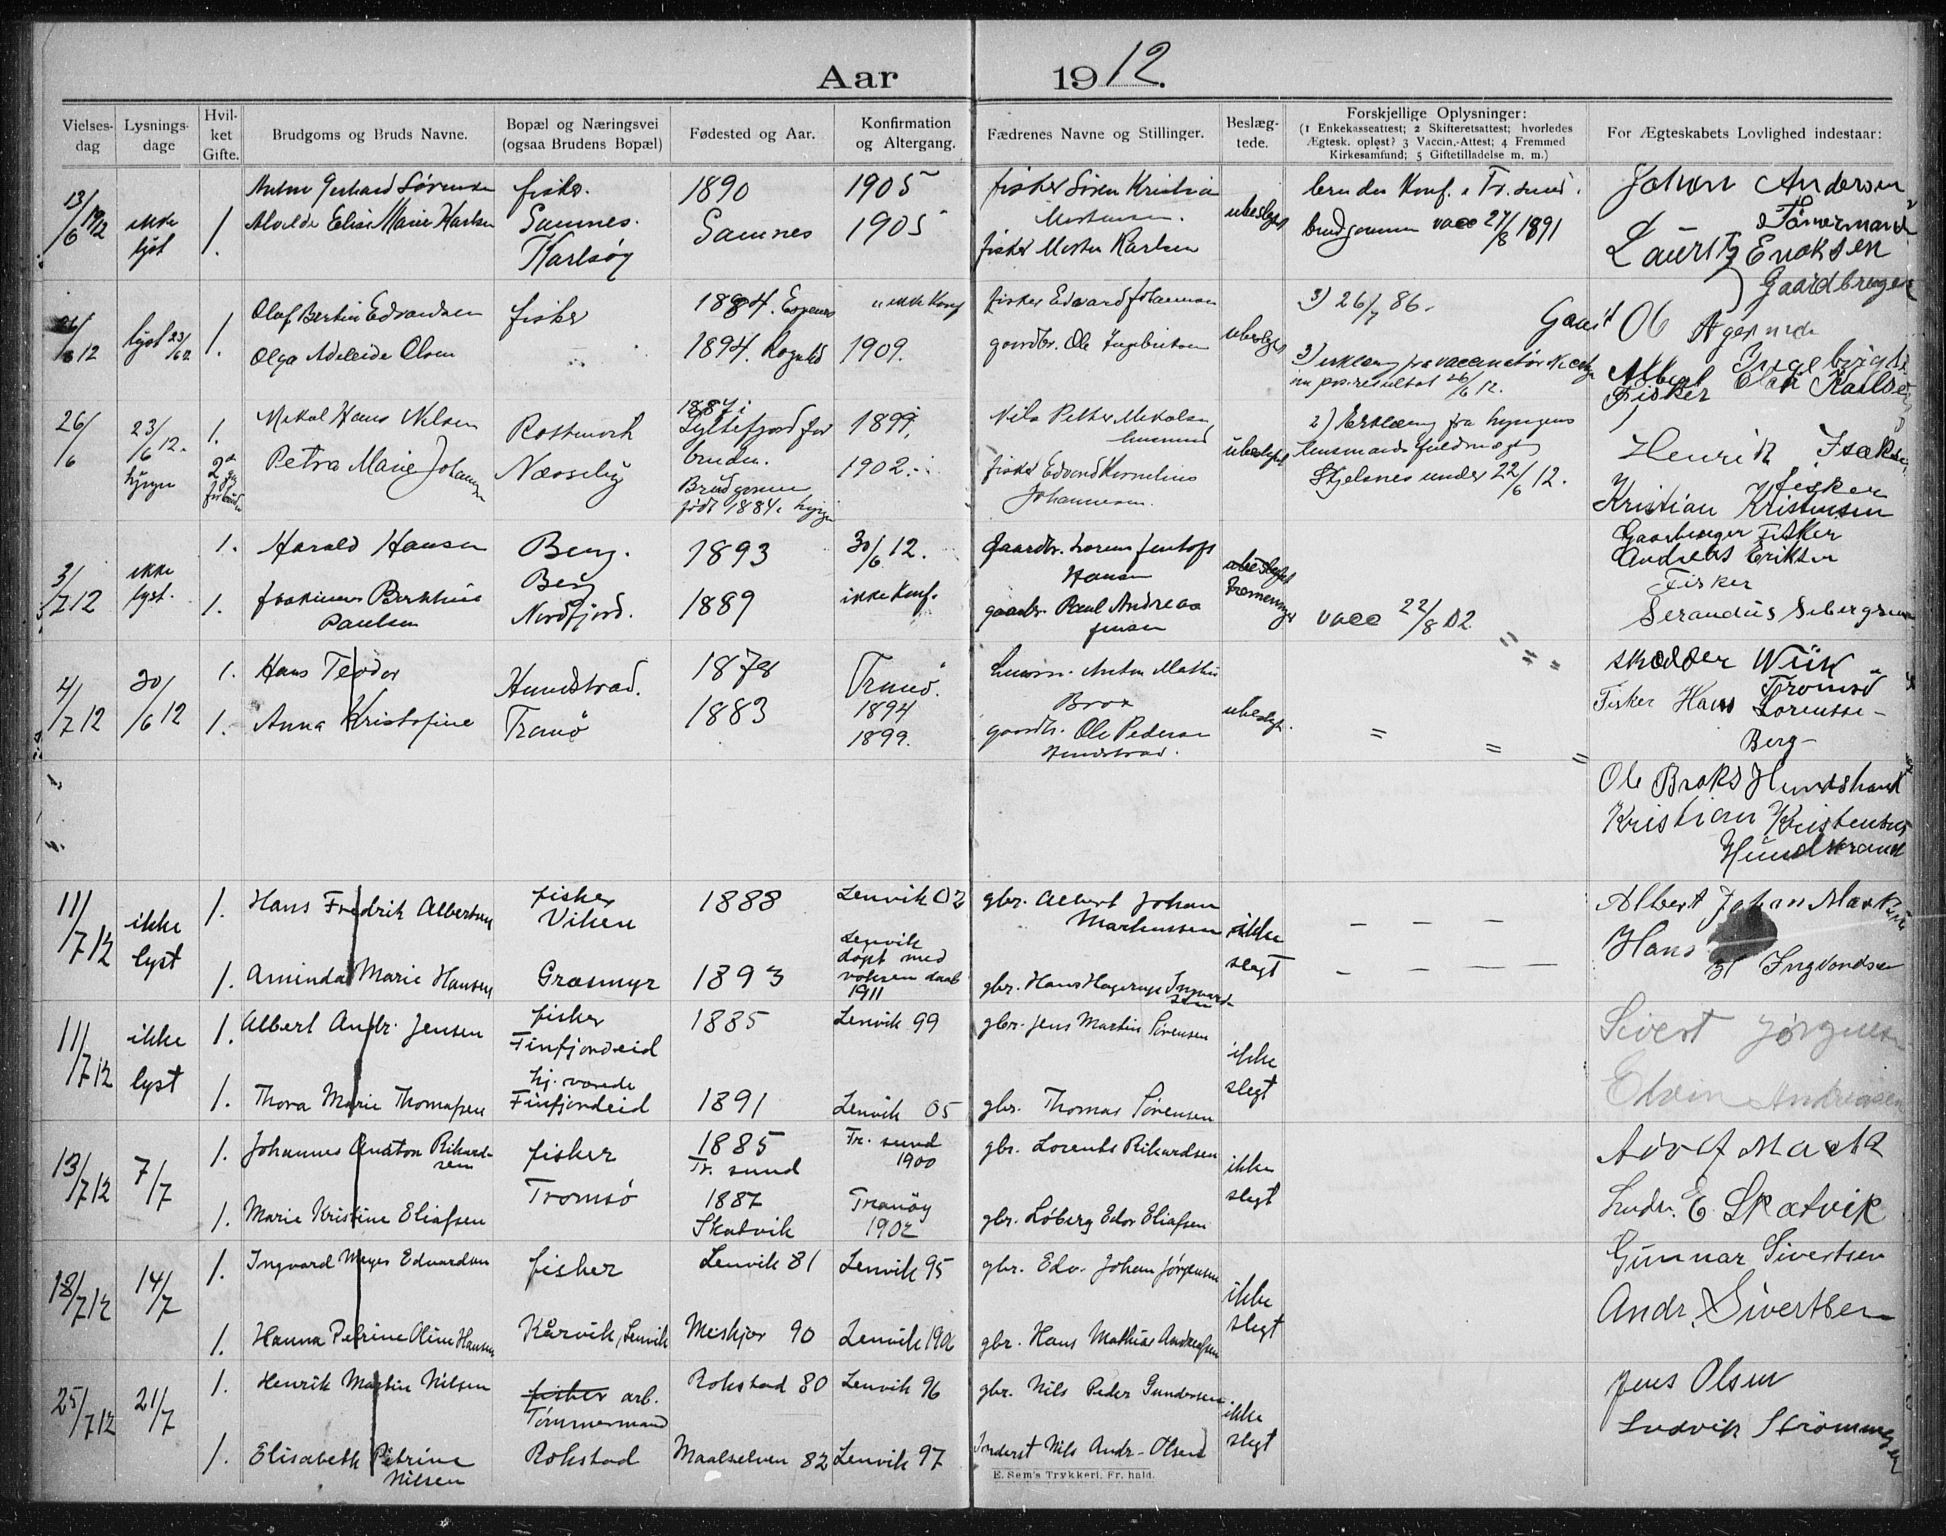 Aar 1912.
Vielses-dag
Lysnings-dage
Hvil-ket Gifte.
Brudgoms og Bruds Navne.
Bopæl og Næringsvei (ogsaa Brudens Bopæl)
Fødested og Aar.
Konfirmation og Altergang.
Fædrenes Navne og Stillinger.
Beslæg-tede.
Forskjellige Oplysninger:
(1 Enkekasseattest; 2 Skifteretsattest; hvorledes
Ægtesk. opløst? 3 Vaccin.-Attest; 4 Fremmed
Kirkesamfund; 5 Giftetilladelse m. m.)
For Ægteskabets Lovlighed indestaar:
13/6 1912 ikke lyst 1. Gerhard Sørensen fisker. 1890 1905 fisker Søren Kristian
Elise Marie Karlsen Samnes. Karlsøy Samnes 1905 fisker Morten Karlsen ubeslegt
brudgommen vacc 27/8 1891
Johan Andersen
Tømermand
Lauritz Enoksen
Gaardbruger
26/6 12 lyst 23/6 12 1. Olof Bertin Edvardsen fisker 1884. ikke Konf fisker Edvard Johannesen ubeslegt 3) 26/7 86.
Olga Adeleide Olsen 1894. 1909. gaardbr. Ole Ingebrigtsen
26/6 12.
Albert Olai Karlsen
Fisker
26/6 23/6 12. 1. Mikal Hans Nilsen 1887 i
Lyltefjord for
bruden.
1899. Nils Petter Mikalsen,
Petra Marie Johansen Næsseby
Brudgommen
født 1884 i
1902. fisker Edvard Kornelius
Johannesen. ubeslegt
2) Erklæring fra
lensmandsfuldmægtig
Stjelsnes under 22/6 12.
Henrik Isaksen
fisker
Kristian Kristensen
Gaarbruger Fisker
3/7 12 ikke lyst. 1. Harald Hansen Berg. 1893 30/6 12. Gaardbr. Lorens Jentoft
Hansen
1. Paulsen Berg
Nordfjord. 1889 ikke Konf. gaardbr. Paul Andreas
Jensen
vacc 22/8 02
Andreas Eriksen
Fisker
Serandius Sebergsen
4/7 12 30/6 12 1. Hans Teodor Hundstrad. 1878 Tranø. 1894 Anton Mathis
Brox
1. Anna Kristofine Tranø 1883 1899. gaardbr. Ole Pedersen
Hundstrad. ubeslegt.
skrædder Wiik
Tromsø
Fisker Hans Lorentse-
Berg-
Ole Broks Hundstrand
Kristian Kristensen
Hundstrand
11/7 12 ikke lyst 1. Hans Fredrik Albertsen fisker
Viken 1888 Lenvik 02 gbr. Albert Johan
Markussen ikke slegt — — —
1. Aminda Marie Hansen Grasmyr 1893 Lenvik
døpt med
voksen daab
1911 gbr. Hans Hagerup Ingvardsen — — — —
Albert Johan Markussen
Hans H Ingvardsen
11/7 12 ikke lyst 1. Albert Andr. Jensen fisker
Finfjordeid 1885 Lenvik 99 gbr. Jens Martin Sørensen ikke slegt
1. Thora Marie Thomassen hj. værende
Finfjordeid 1891 Lenvik 05 gbr. Thomas Sørensen
Sivert Jørgensen
Edvin Andreassen
13/7 12 7/7 1. Johannes Anston Rikardsen fisker 1885
Tr. sund Tr. sund
1900 gbr. Lorents Rikardsen ikke slegt
1. Marie Kristine Eliassen Tromsø 1887
Skatvik Tranøy
1902 gbr. Løberg Edv Eliassen
Adolf Mack
Ludv. E. Skatvik
18/7 12 14/7 1. Ingvard Meyer Edvardsen fisker Lenvik 81 Lenvik 95 gbr. Edv. Johan Jørgensen ikke slegt
1. Hanna Petrine Oline Hansen Kårvik, Lenvik Meskjor 90 Lenvik 1906 gbr. Hans Mathias Andreassen
Gunnar Sivertsen
Andr. Sivertsen
25/7 12 21/7 1. Henrik Martin Nilsen fisker arb.
Tømmermand Rokstad 80 Lenvik 96 gbr. Nils Peder Gundersen ikke slegt
1. Elisabeth Petrine
Nilsen Rokstad Maalselven 82 Lenvik 97 Inderst Nils Andr. Olsen
Jens Olsen
Ludvik Strømmesen
E. Sem's Trykkeri, Fr. hald.